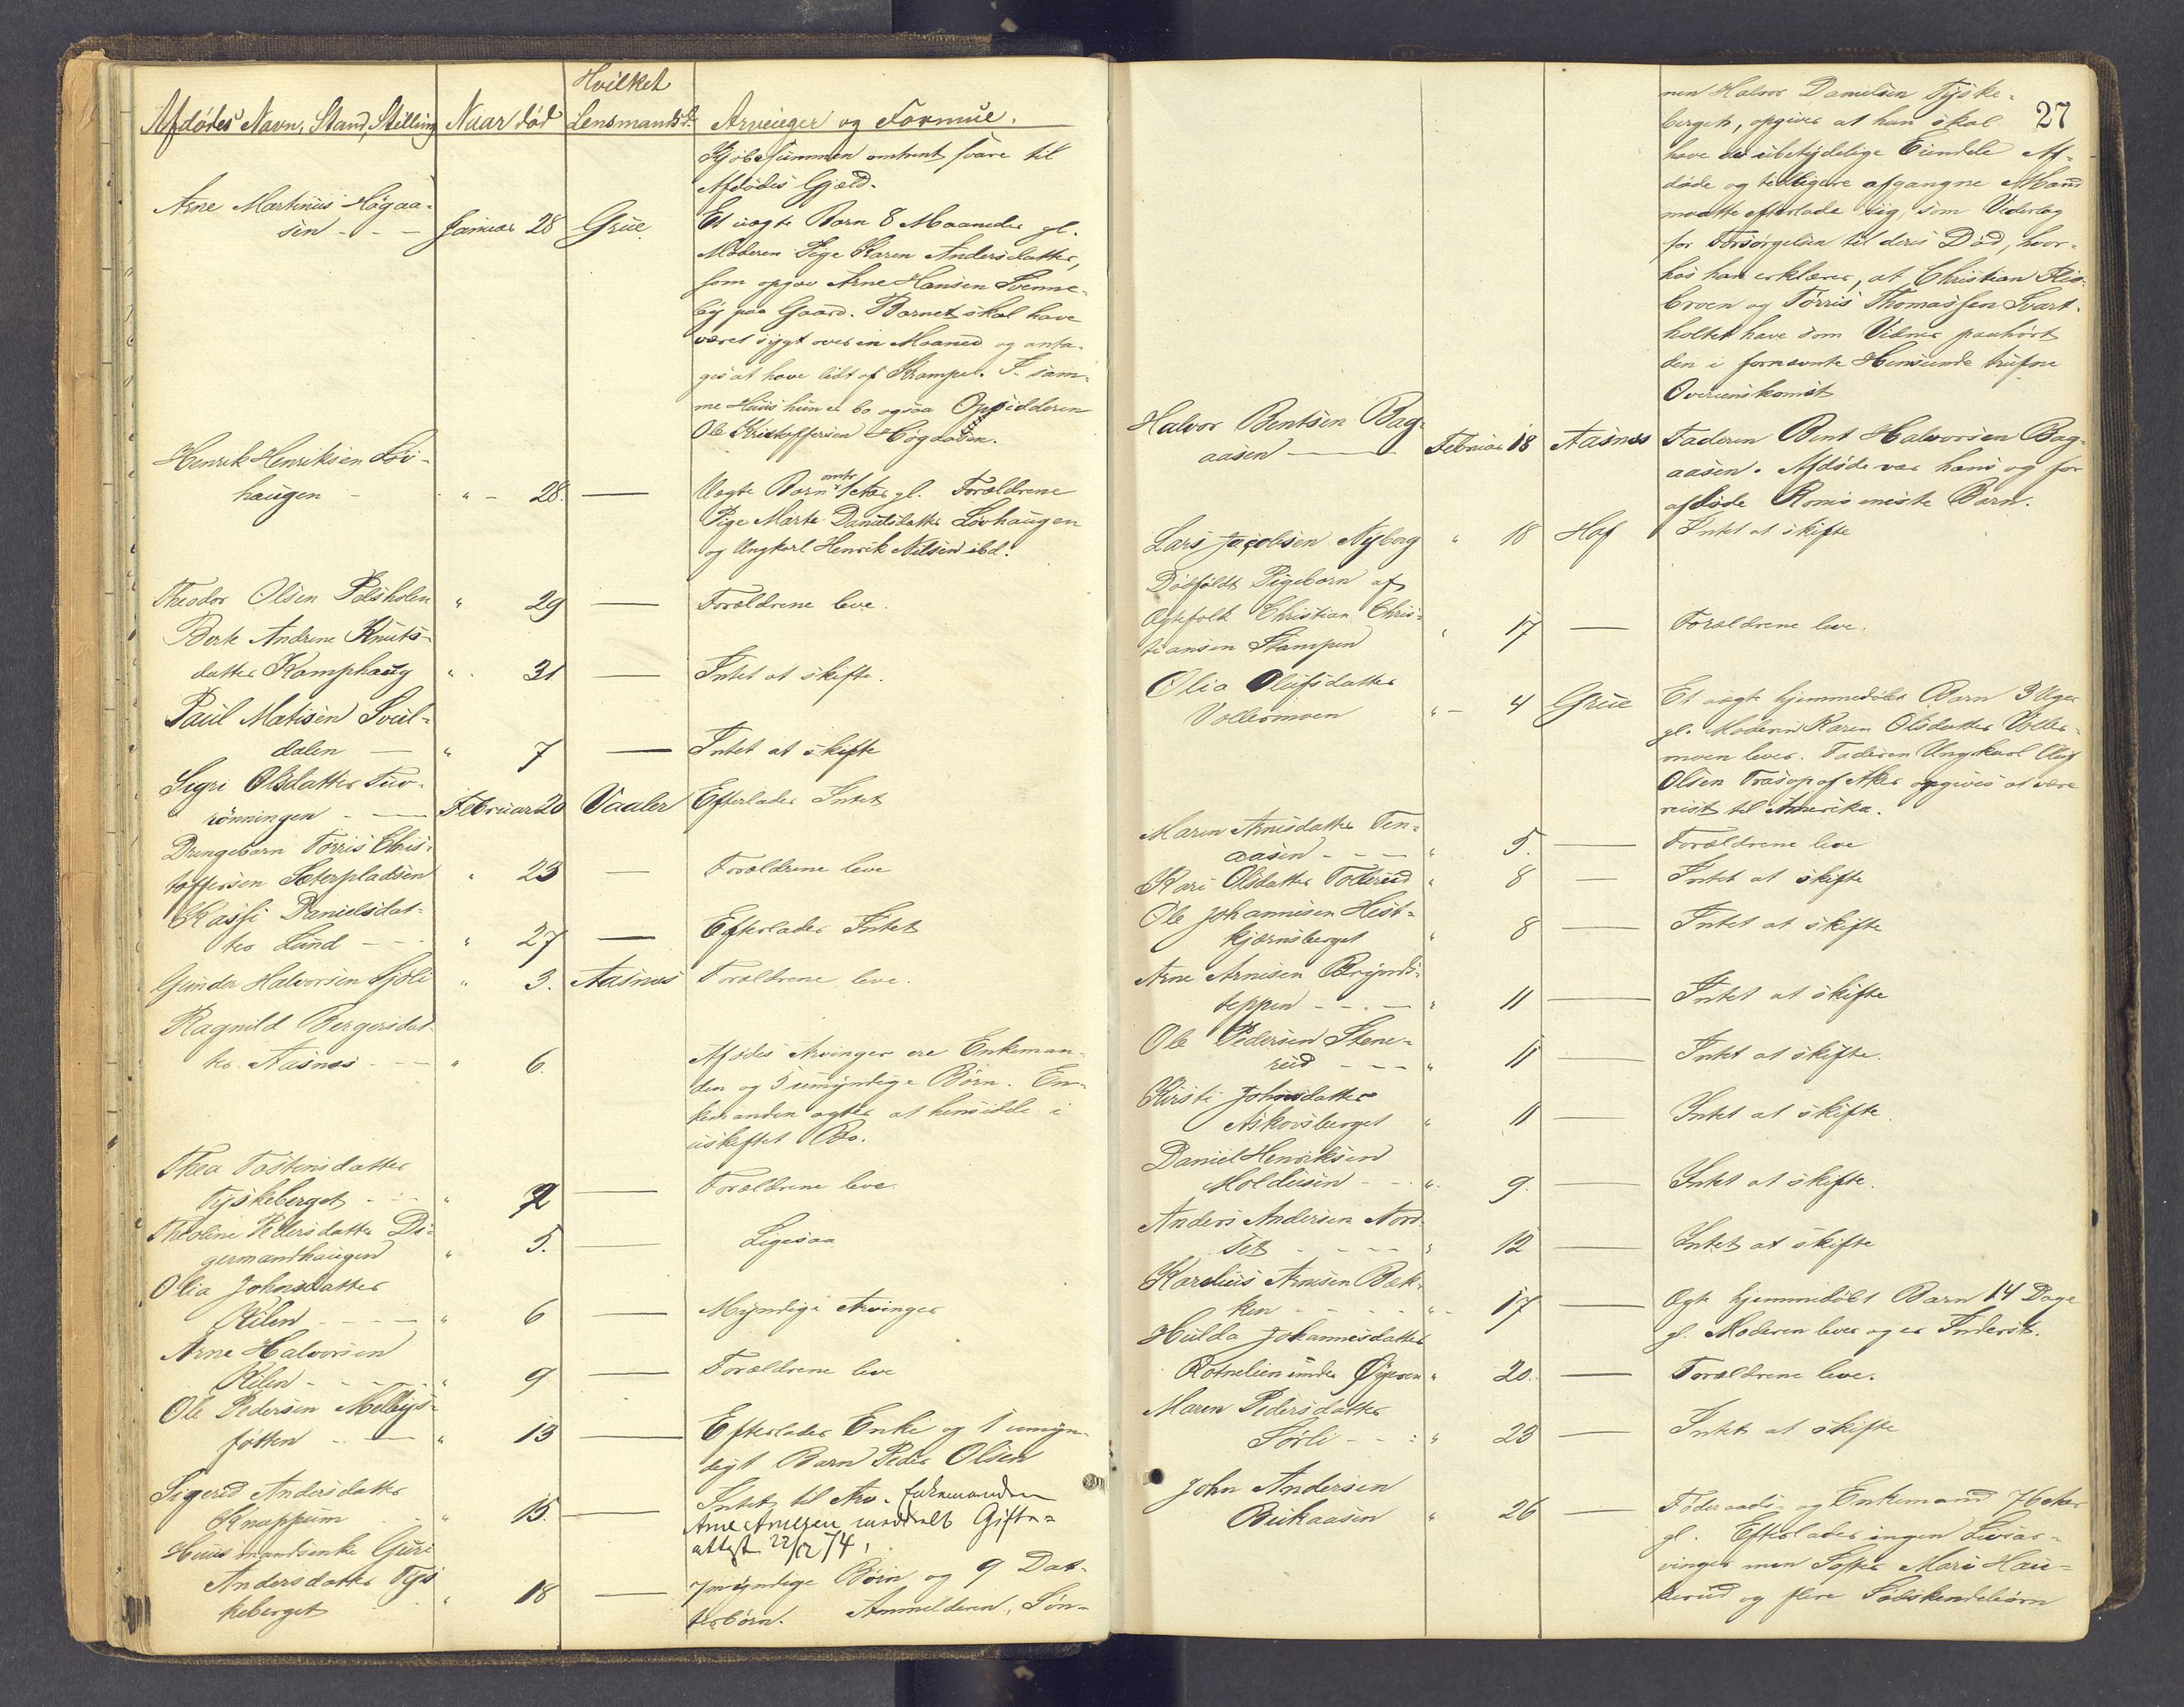 Hvilket
Afdødes Navn, Stand, Stilling Naar død Lensmandsd. Arvinger og Formue.
Kjøbesummen omtrent svare til
Afdødes Gjæld.
Arne Martinius Høgaa-
sen - - - Januar 28 Grue
Et uægte Barn 8 Maaneder gl.
Moderen Pige Karen Andersdatter,
som opgav Arne Hansen Svenne-
by paa Gaard. Barnet skal have
været sygt over en Maaned og anta-
ges at have lidt af Krampe. I sam-
me Huus hun er bo ogsaa Opsidderen
Ole Kristoffersen Høgdalen.
Henrik Henriksen Løv-
haugen - " - 28. —
Uægte Barn omtr 1 Aar gl. Forældrene
Pige Marte Danielsdatter Løvhaugen
og Ungkarl Henrik Nilsen ibd.
Theodor Olsen Polsholen " 29 — Forældrene leve.
Berte Andrine Knuts-
datter Kamphaug " 31 — Intet at skifte.
Paul Matisen Svul-
dalen — " 7 — Intet at skifte
Sigri Olsdatter Fur-
rønningen - — Februar 20 Vaaler Efterlader Intet
Drengebarn Tørris Chris-
toffersen Sæterpladsen " 23 — Forældrene leve
Kassi Danielsdat-
ter Lund - - - " 27 — Efterlader Intet
Gunder Halvorsen Sjøli " 3. Aasnæs Forældrene leve.
Ragnild Bergersdat-
ter Aasnæs - - - " 6.
Afdødes Arvinger ere Enkeman-
den og 5 umyndige Børn. En-
kemanden agter at hensidde i
uskiftet Bo.
Thea Tostensdatter
Tyskeberget - - - " 2 — Forældrene leve.
Theoline Pedersdatter Di-
germandhaugen " 5. — Ligesaa
Olia Johnsdatter
Kilen - - - — " 6 — Myndige Arvinger
Arne Halvorsen
Kilen - - - - " 9 — Forældrene leve
Ole Pedersen Melbys-
føtten - - — " 13 — Efterlader Enke og 1 umyn-
digt Barn Peder Olsen
Sigerid Andersdatter
Knappum " 15. — Intet til Arv. Enkemanden
Arne Arnesen meddelt Gifte-
attest 22/12 74.
Huusmandsenke Guri
Andersdatter Tys-
keberget " 18 — 7 myndige Børn og 9 Dat-
terbørn. Anmelderen, Søn-
27
nen Halvor Danielsen Tyske-
berget, opgiver at han skal
have de ubetydelige Eiendele Af-
døde og tidligere afgangne Mand
maatte efterlade sig, som Vederlag
for Forsørgelsen til deres Død, hvor-
hos han erklærer, at Christian Flis-
broen og Tørris Thomassen Svart-
holtet have som Vidner paahørt
den i fornævnte Henseende trufne
Overenskomst
Halvor Bentsen Bag-
aasen — Februar 18 Aasnæs Faderen Bent Halvorsen Bag-
aasen. Afdøde var hans og for
afdøde Kones eneste Barn.
Lars Jacobsen Nyborg " 18 Hof Intet at skifte
Dødfødt Pigebarn af
Ægtefolk Christian Chris-
tiansen Stampen " 17 — Forældrene leve.
Olia Olufsdatter
Vollermoen " - 4 Grue Et uægte hjemmedøbt Barn 3 Uger
gl. Moderen Karen Olsdatter Voller-
moen lever. Faderen Ungkarl Oluf
Olsen Frasop af Aker opgives at være
reist til Amerika.
Maren Arnesdatter Ten-
aasen - - - " 5. — Forældrene leve
Kari Olsdatter Tollerud " 8 — Intet at skifte
Ole Johannesen Hest-
kjærnsberget " 8 — Intet at skifte
Arne Arnesen Brynds-
teppen - - - " 11 — Intet at skifte
Ole Pedersen Stene-
rud - - - " 11 — Intet at skifte.
Kirsti Johnsdatter
Askovsberget " 11 — Intet at skifte.
Daniel Henriksen
Moldusen - - " 9. — Intet at skifte.
Anders Andersen Nord-
set - - - - " 12 — Intet at skifte
Karelius Arnesen Bæk-
ken - - - - " 17 — Ægte hjemmedøbt Barn 14 Dage
gl. Moderen lever og er Inderst.
Hulda Johannesdatter
Rotnelien under Øyeren " 20. — Forældrene leve.
Maren Pedersdatter
Sørli - - : " 23 — Intet at skifte
John Andersen
Bukaasen " 26 — Føderaads- og Enkemand 76 Aar
gl. Efterlader ingen Livsar-
vinger men Søster Mari Hau-
kerud og flere Søskendebørn